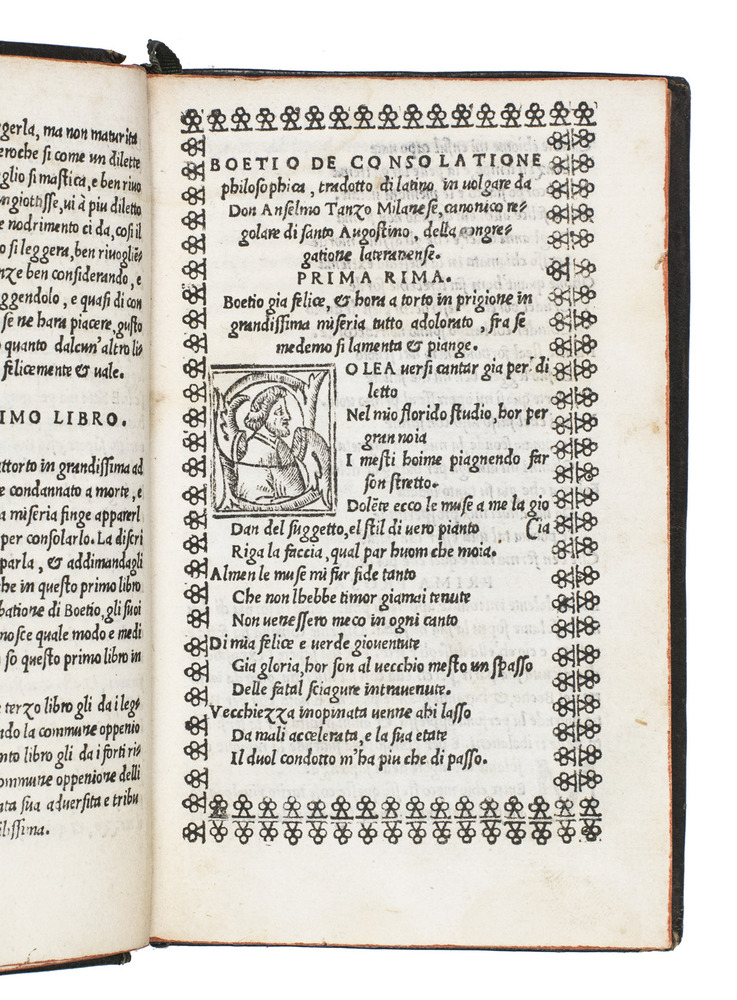 gerla, ma non maturita
eroche si come un dilette
glio si mastica, e ben
ngiottisse, ui à piu diletto
e nodrimento ci da, cosi il
o si leggera, ben riuogliē⸗
nze ben considerando, e
ggendolo, e quasi di con
se ne hara piacere, gusto
quanto dalcun'altro li⸗
felicemente & uale.
IMO LIBRO.
attorto in grandissima ad
e condannato a morte, e
a miseria finge apparerl
per consolarlo. La discri
parla, & addimandagli
he in questo primo libro
batione di Boetio, gli suoi
nosce quale modo e medi
so questo primo libro in
terzo libro gli da i leg⸗
ndo la commune oppenio
nto libro gli da i forti ri⸗
ommune oppenione delli
ata sua aduersita e tribu
lissima.
BOETIO DE CONSOLATIONE
philosophica, tradotto di latino in uolgare da
Don Anselmo Tanzo Milanese, canonico re⸗
golare di santo Augostino, della congre⸗
gatione lateranense.
PRIMA RIMA.
Boetio gia felice, & hora a torto in prigione in
grandissima miseria tutto adolorato, fra se
medemo si lamenta & piange.
OLEA uersi cantar gia per di
letto
Nel mio florido studio, hor per
gran noia
I mesti hoime piagnendo far
son stretto.
Dolēte ecco le muse a me la gio
Dan del suggetto, el stil di uero pianto (ia
Riga la faccia, qual par huom che moia.
Almen le muse mi fur fide tanto
Che non lhebbe timor giamai tenute
Non uenessero meco in ogni canto
Di mia felice e uerde giouentute
Gia gloria, hor son al uecchio mesto un spasso
Delle fatal sciagure intrauenute.
Vecchiezza inopinata uenne ahi lasso
Da mali accelerata, e la sua etate
Il duol condotto m'ha piu che di passo.